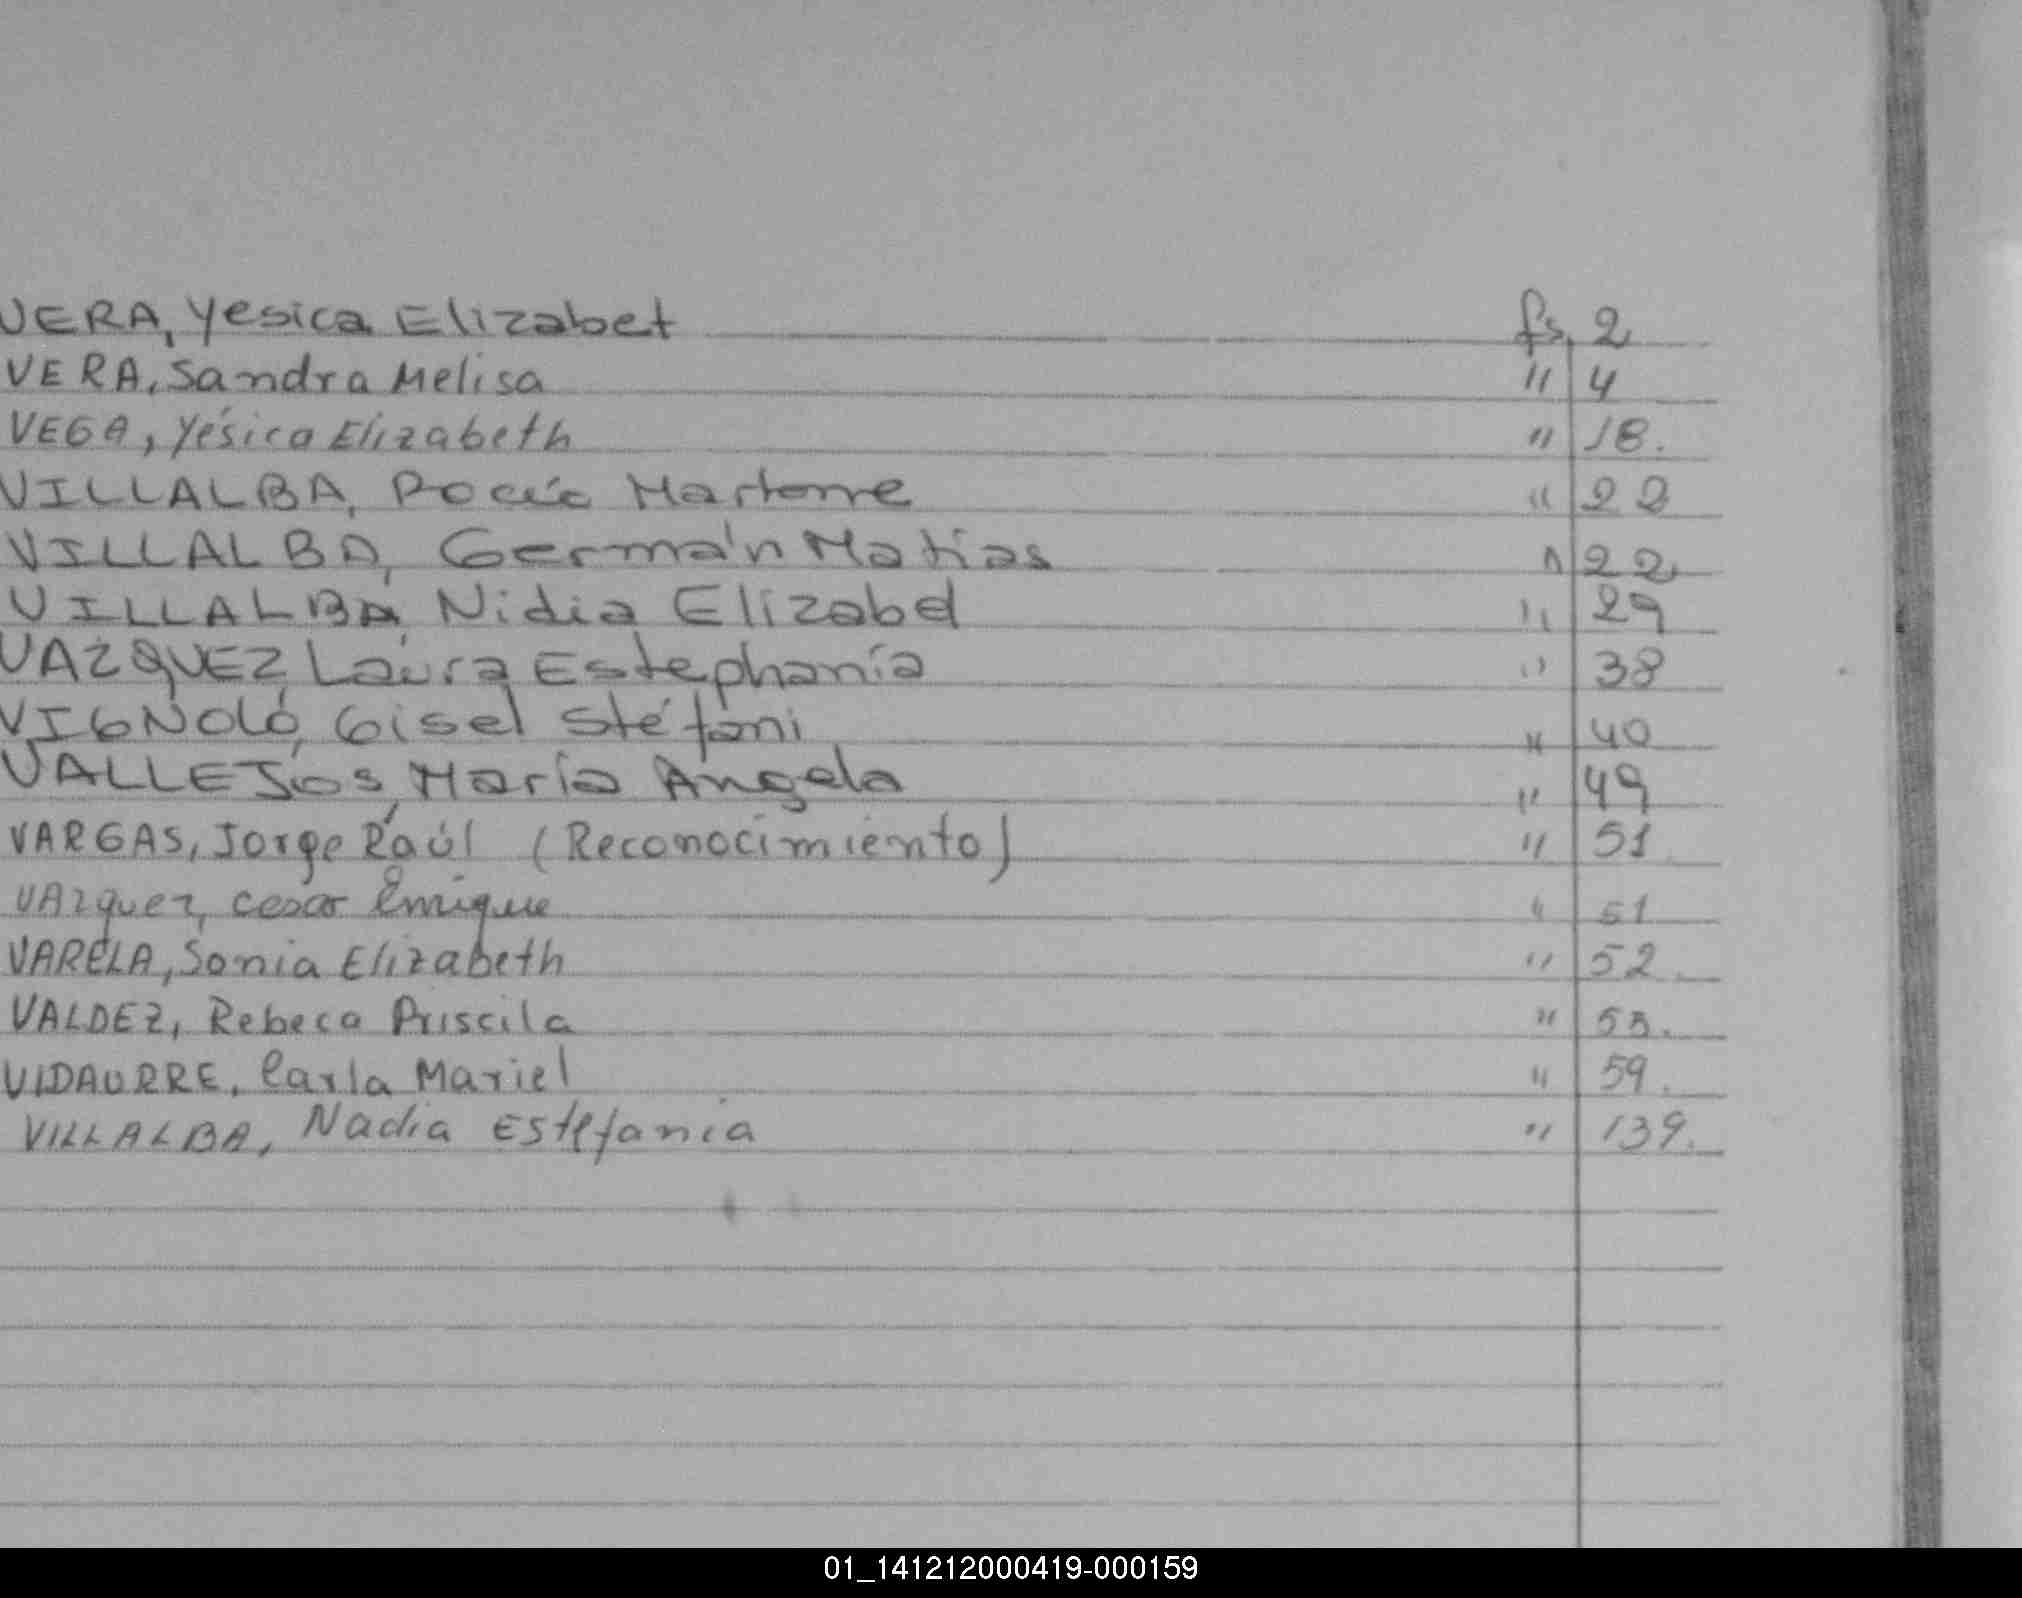 VERA, Yesica Elizabet fs. 2
VERA, Sandra Melisa " 4
VEGA, Yésica Elizabeth " 18.
VILLALBA, Rocío " 22
VILLALBA, Germán Matias " 22
VILLALBA, Nidia Elizabet " 29
VAZQUEZ, Laura Estephanía " 38
VIGNOLO, Gisel Stéfani " 40
VALLEJOS, María Angela " 49
VARGAS, Jorge Raúl (Reconocimiento) " 51
VAzquez, cesar Enrique " 51
VARELA, Sonia Elizabeth " 52
VALDEZ, Rebeca Priscila " 55.
VIDAURRE, Carla Mariel " 59.
VILLALBA, Nadia Estefania " 139.
01_141212000419-000159